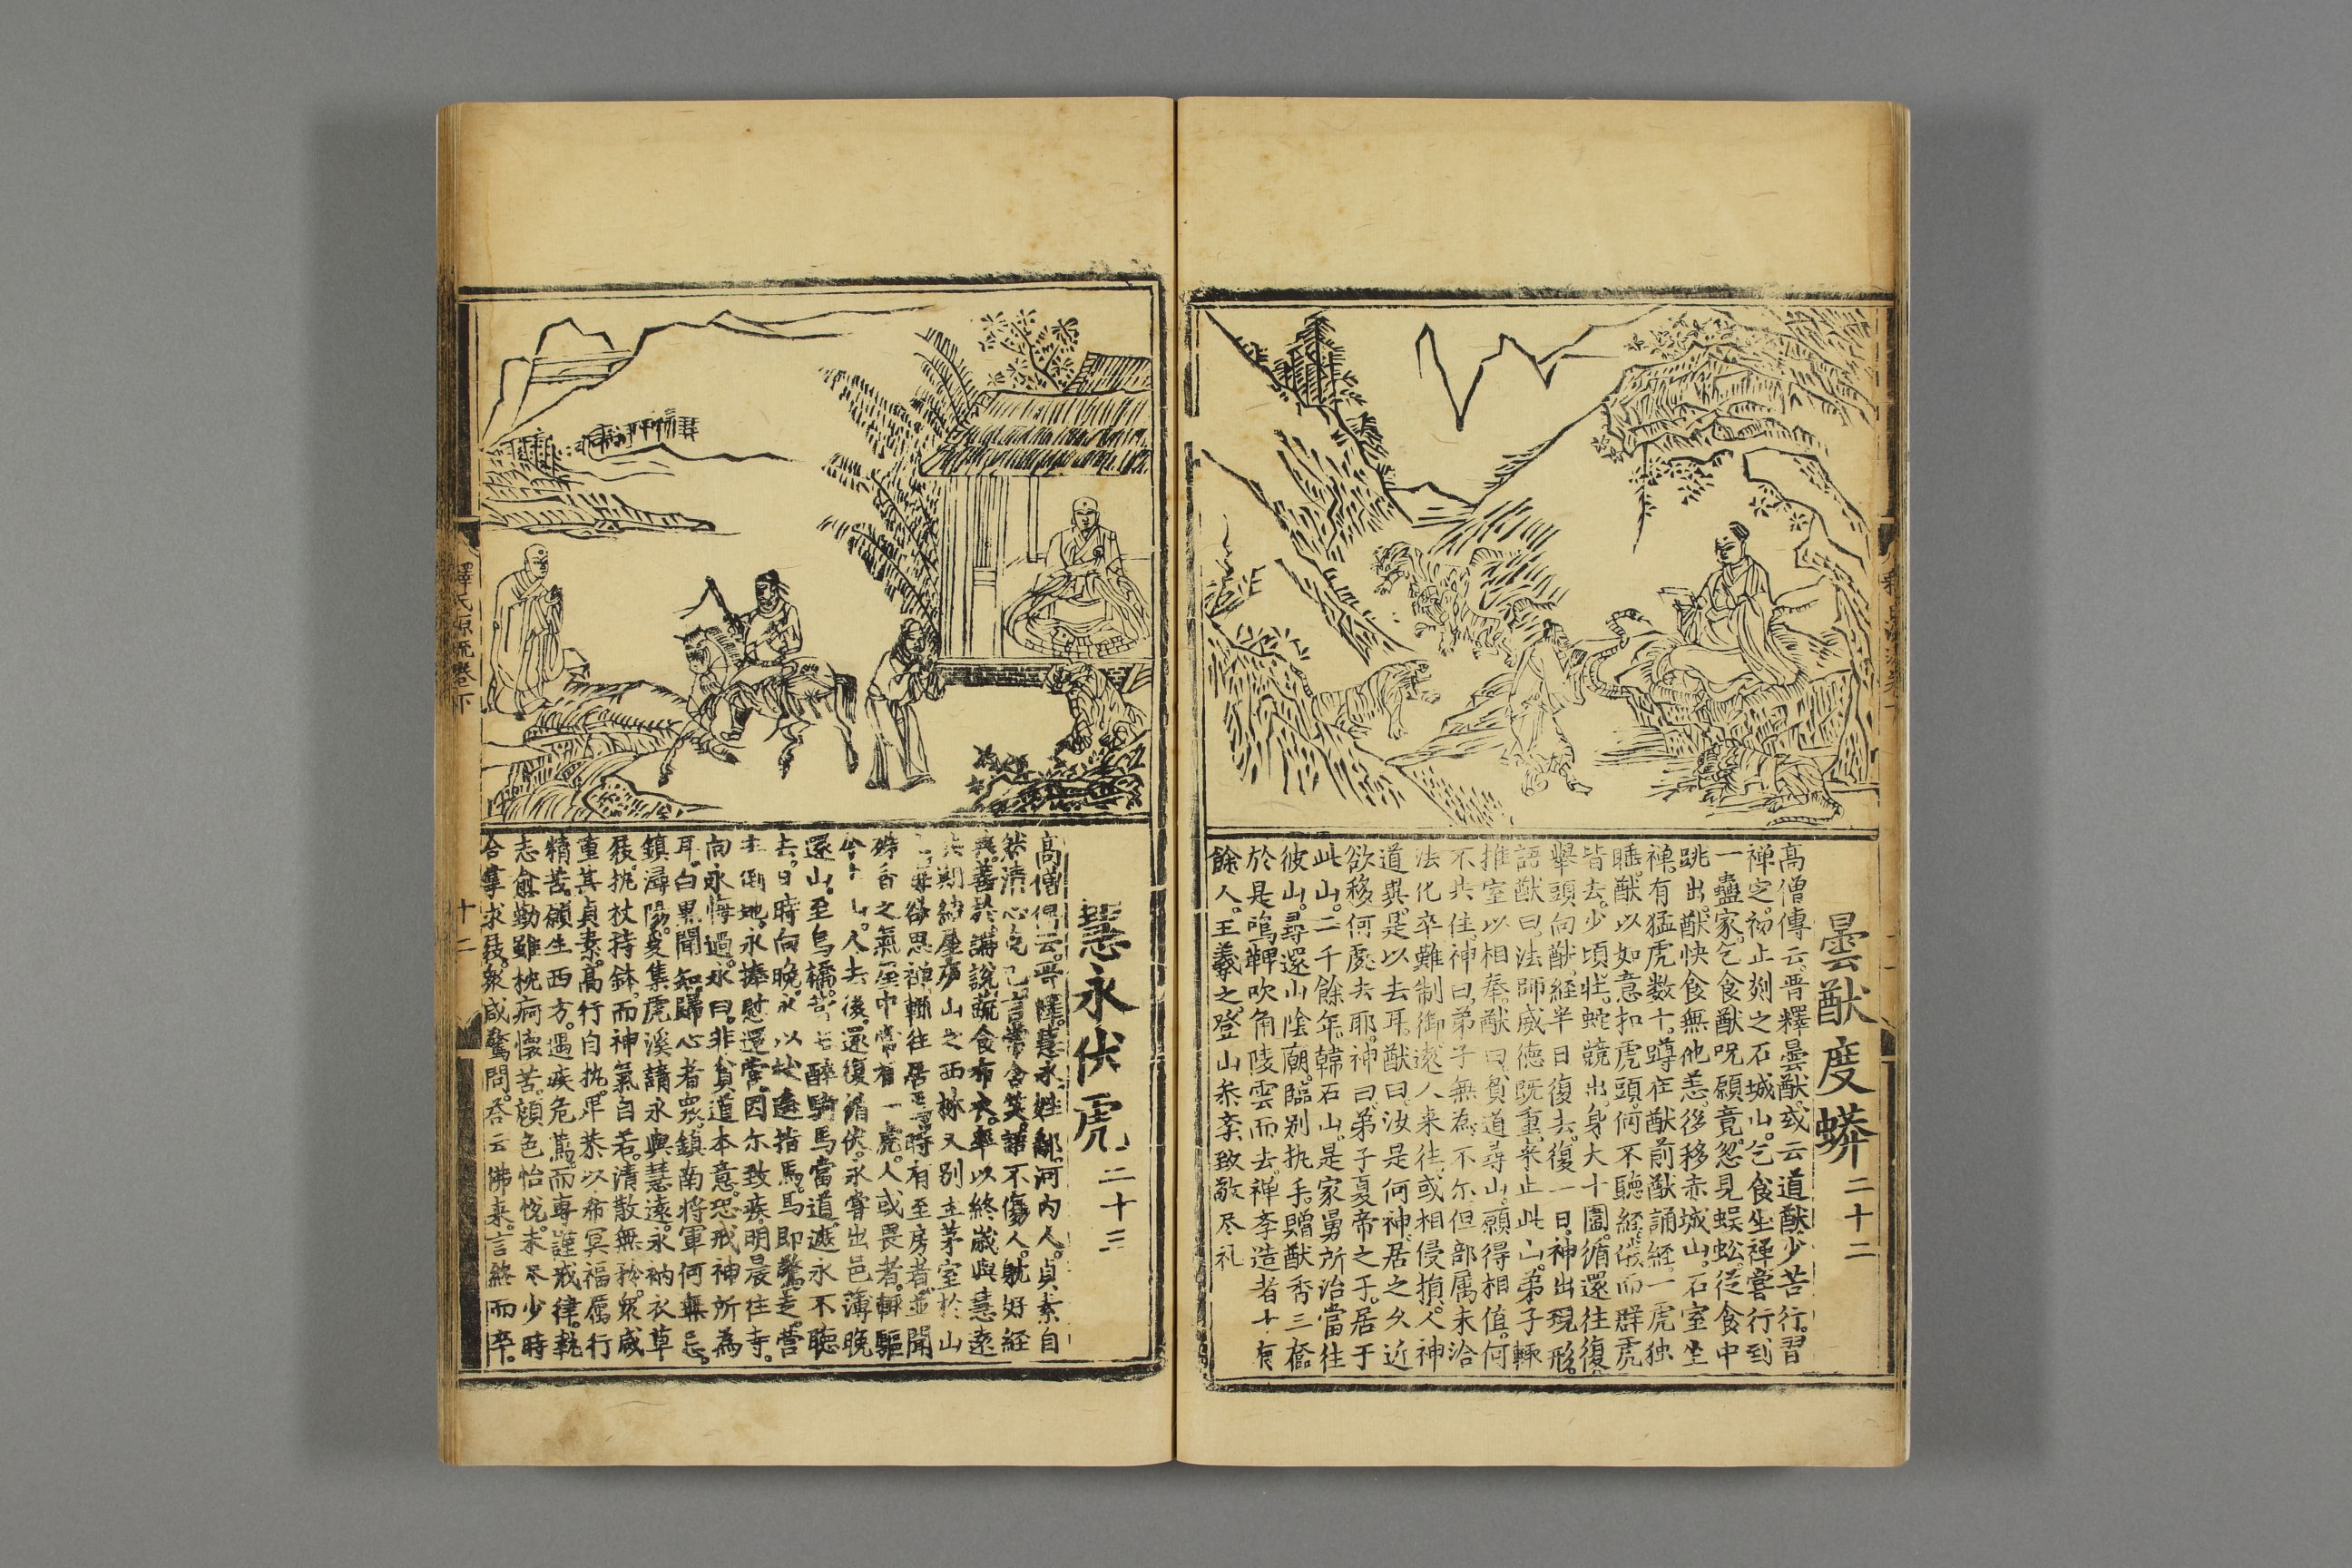 曇猷度蟒 二十二
高僧傳云。晋釋曇猷。或云道猷。少苦行。習
禅定。初止剡之石城山。乞食坐禅。嘗行到
一蠱家。乞食猷呪願竟。忽見蜈蚣。從食中
跳出。猷快食無他恙。後移赤城山。石室坐
禅。有猛虎数十。蹲在猷前猷誦經。一虎独
睡。猷以如意扣虎頭。何不聽經。俄而群虎
皆去。少頃壮。蛇競出。身大十圍。循還往復。
舉頭向猷。經半日復去。復一日。神出現形。
語猷曰。法師威徳既重。来止此山。弟子輙
推室以相奉。猷曰。貧道尋山。願得相值。何
不共住。神曰。弟子無為。不尓。但部属未洽
法化卒難制御。遠人来往。或相侵損。人神
道異。是以去耳。猷曰。汝是何神。居之久近
欲移何處去耶。神曰。弟子夏帝之子。居于
此山。二千餘年。韓石山。是家舅所治當往
彼山。尋還山陰廟。臨别执手。贈猷香三奩
於是鳴鞞吹角陵雲而去。禅李造者十有
餘人。王羲之。登山叅李。致敬尽礼
慧永伏虎 二十三
高僧傳云。晋釋慧永。姓鄱。河内人。貞素自
然。清心克己。言常含笑。語不傷人。躭好経
典。善於講說。蔬食布衣。率以終歳。與慧遠
共期結屋庐山之西林。又别立茅室於山
每欲思禅。輙往居焉。時有至房者。並聞
殊香之氣。屋中常有一虎。人或畏者。輙驅
令上山。人去後。還復循伏。永嘗出邑。薄晚
還山。至烏橋。营主醉騎馬當道。遮永不聴
去。日時向晚。永以杖遥指馬。馬即驚走。营
主倒地。永捧慰還营。因尓致疾。明晨往寺。
向永悔過。永曰。非貧道本意。恐戒神所為
耳。白黒聞知歸心者衆。鎮南将軍何無忌。
鎮潯陽。爰集虎溪請永與慧遠。永衲衣草
屐。执杖持鉢。而神氣自若。清散無矜。衆咸
重其貞素。高行自执。卑恭以希冥福属行
精苦。願生西方。遇疾危篤。而專謹戒律。執
志愈勤雖枕病懷苦。顔色怡悦。未尽少時
合掌求屐。衆咸驚問。荅云佛来。言終而卒。
釋氏源流卷下
十二